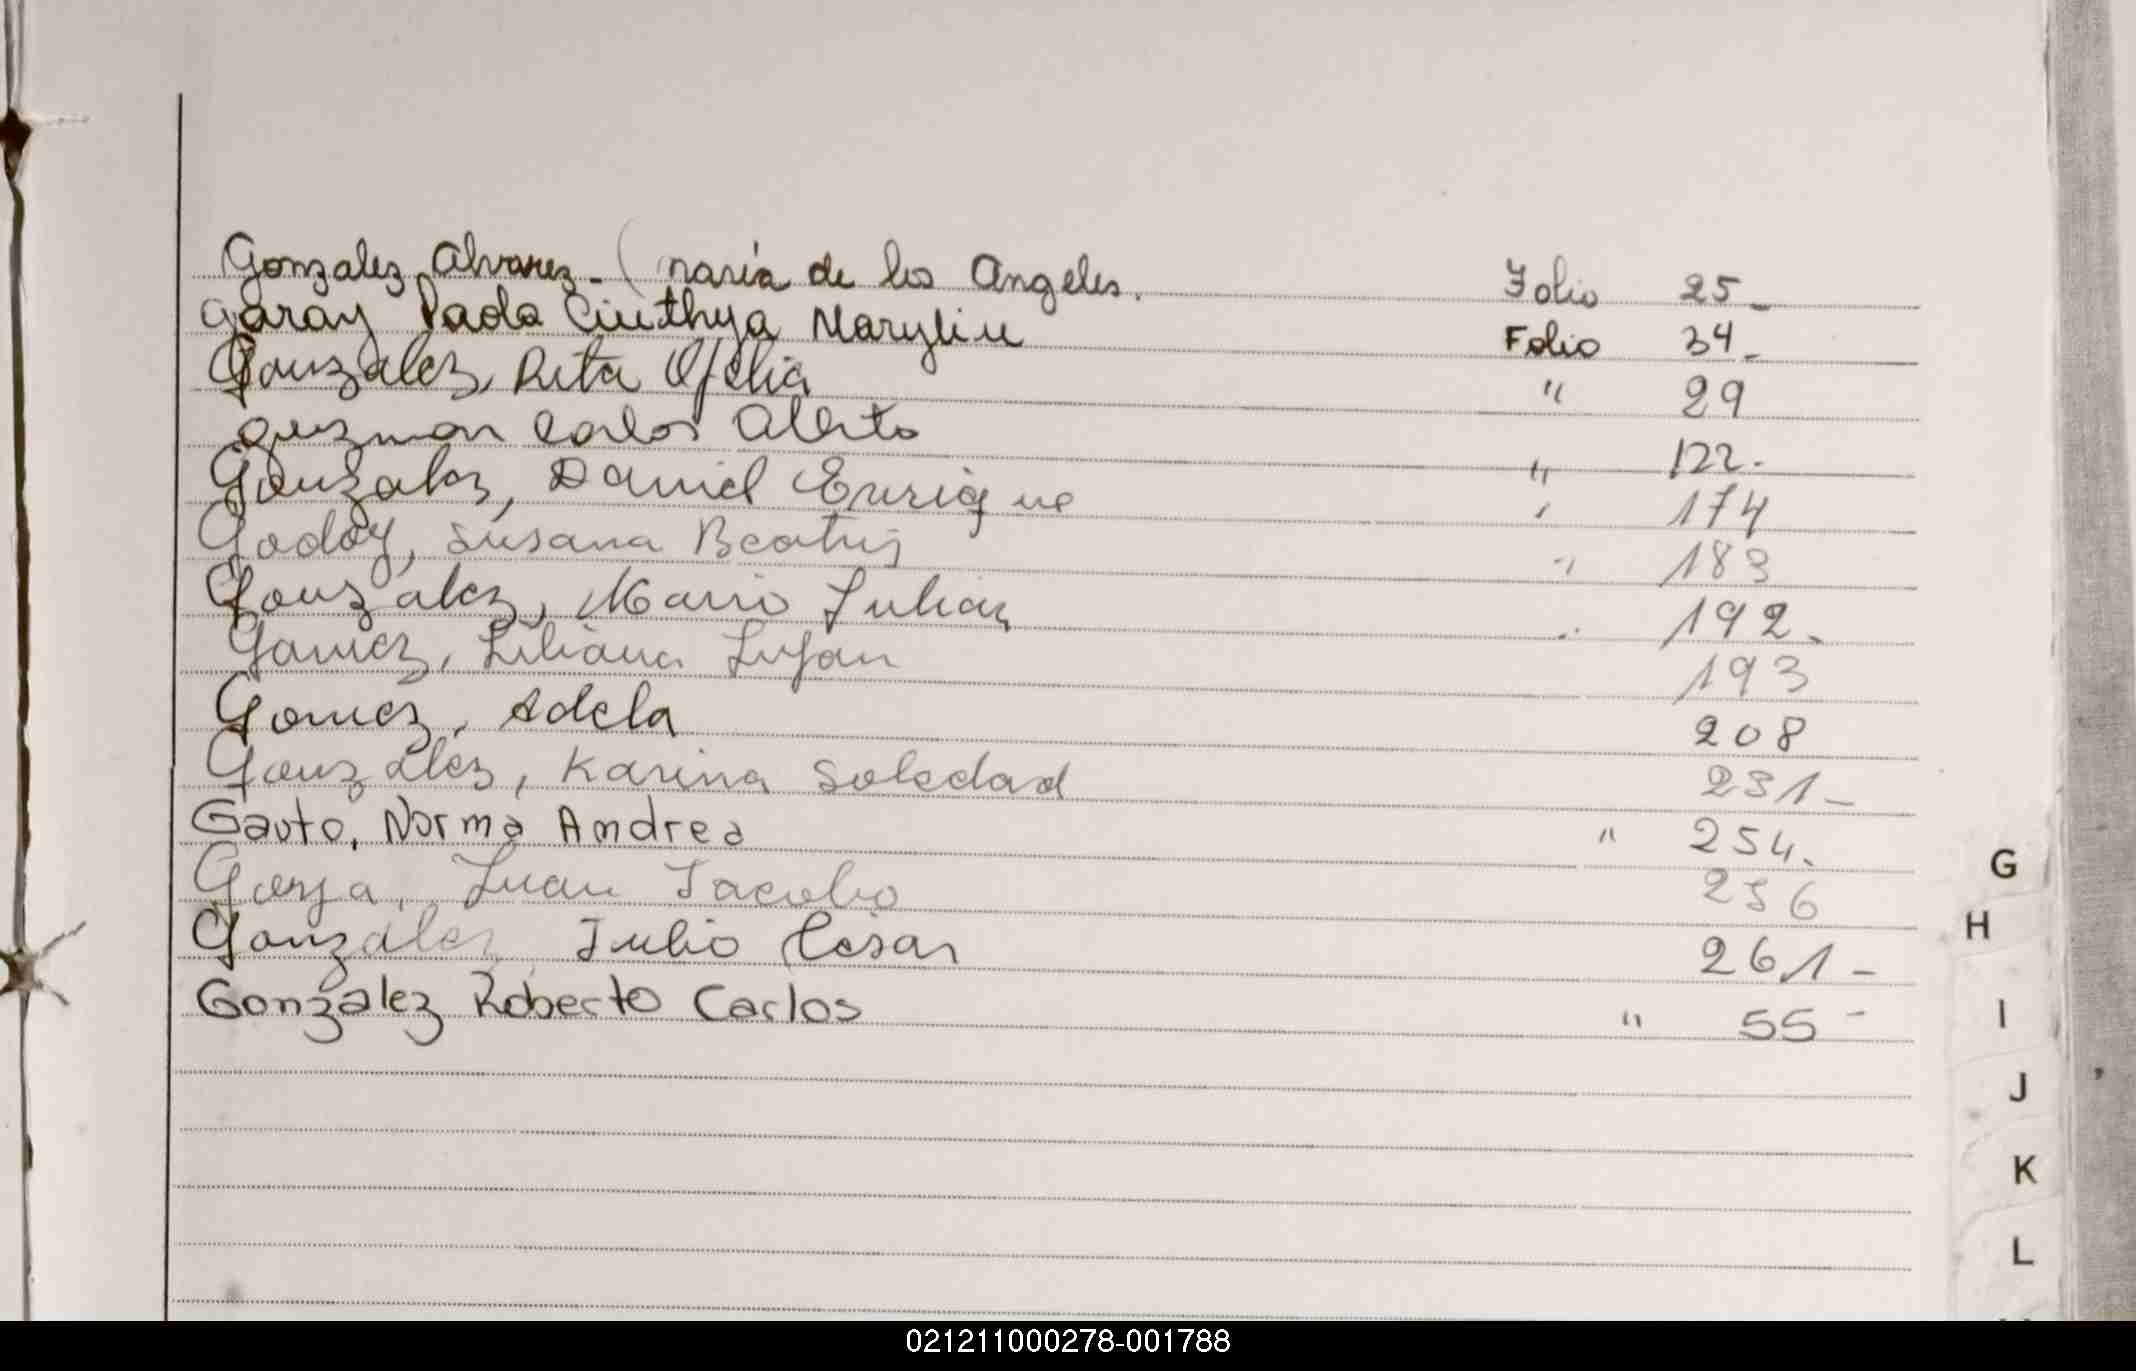 Gonzalez Alvarez - ( maria de los Angeles. Folio 25 -
Garay Paola Cinthya Marylin Folio 34 -
Gonzalez, Rita Ofelia " 29
guzman Carlos Alberto " 122.
Gonzalez, Daniel Enrique " 174
Godoy, Susana Beatriz " 183
Gonzalez, Mario Julian " 192.
Gomez, Liliana Lujan 193
Gomez, Adela 208
Gonzalez, Karina Soledad 231 -
Gauto, Norma Andrea " 254.
Juan Jacobo 256
Gonzalez, Julio Cesar 261 -
Gonzalez Roberto Carlos " 55 -
G
H
I
J
K
L
021211000278-001788